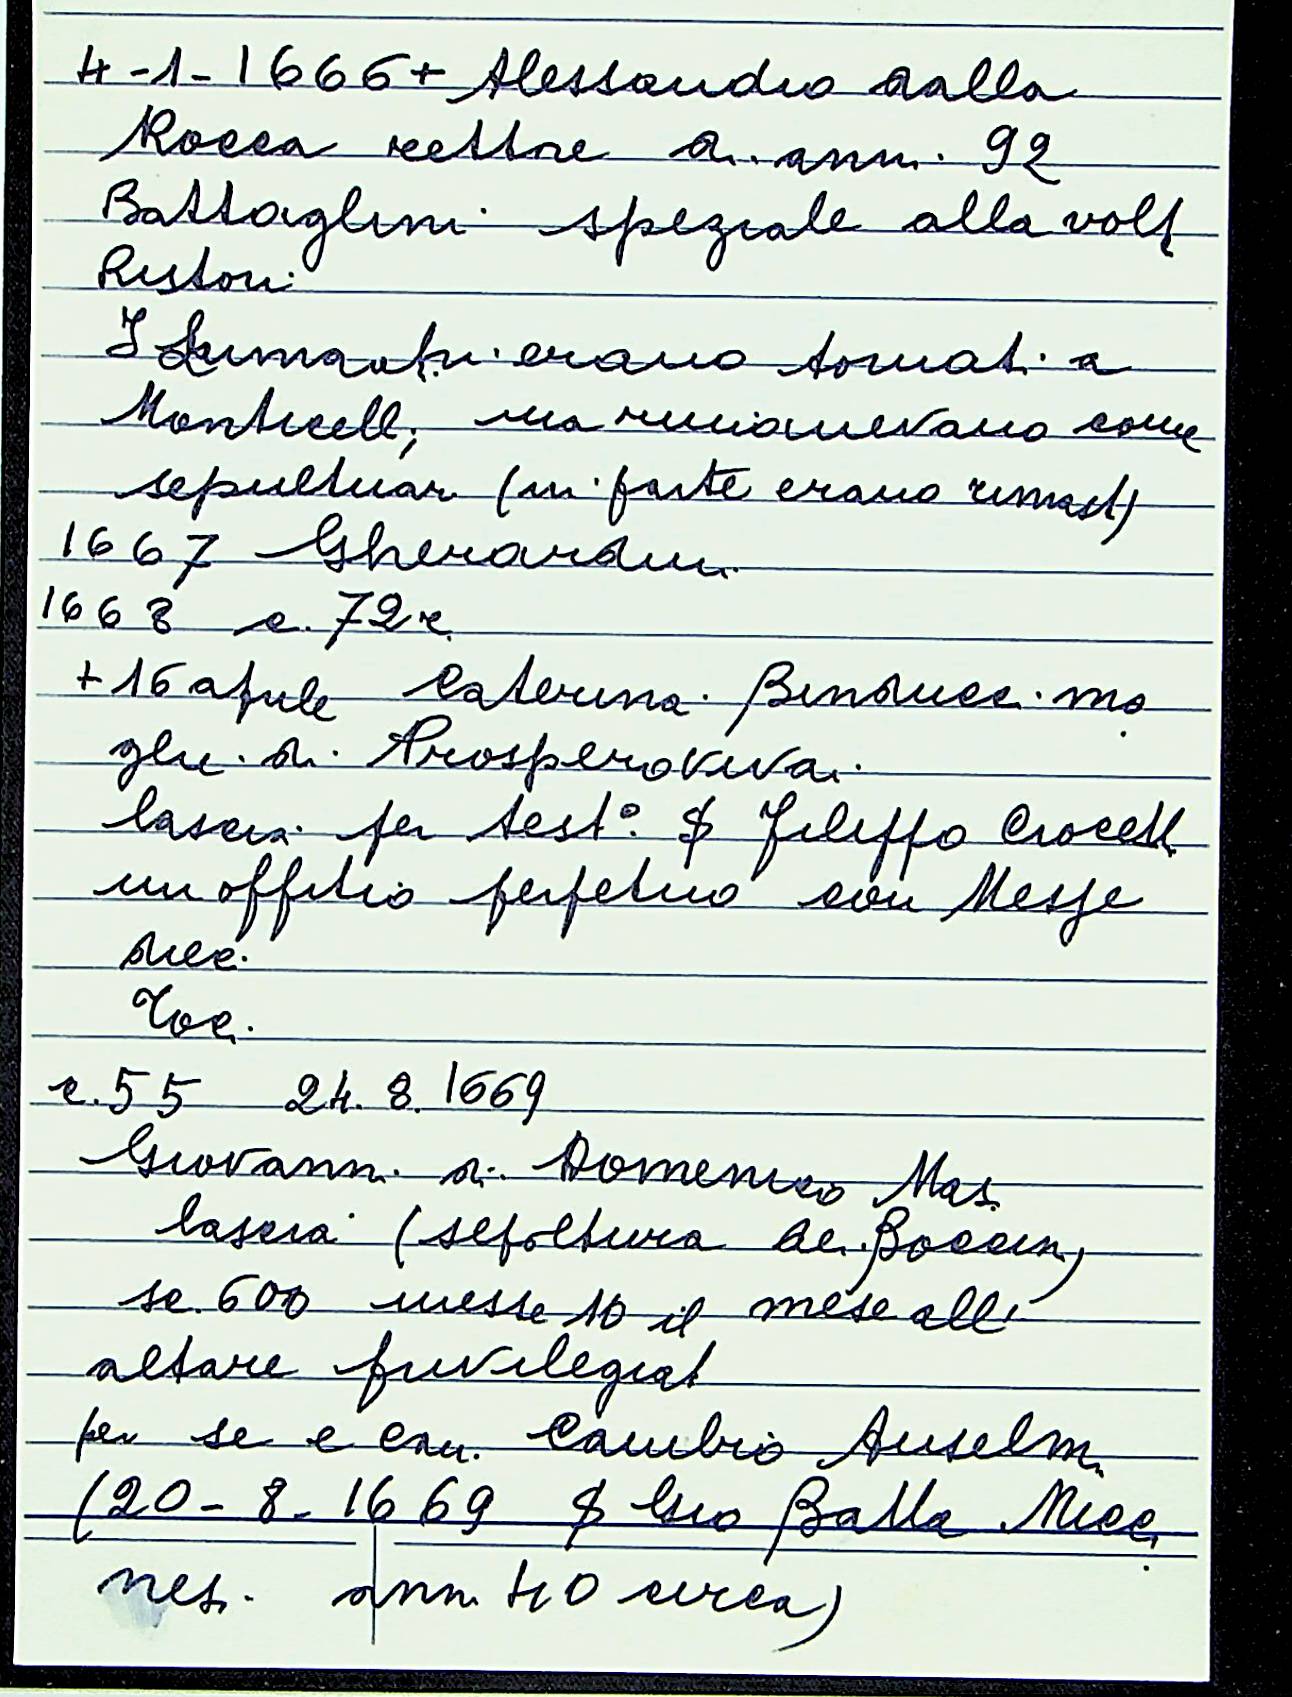 4-1-1666+ Alessandro dalla
Rocca rettore di ann. 92
Battaglini speziale alla volt
Ristori
I erano tornati a
Monticelli, ma rimanevano come
sepultuar (in parte erano rimasti)
1667 Gherardini
1668 c. 72r.
+16 aprile Caterina Binducci mo
glie di Prospero Vivai
lascia per test° $ Filippo Crocetti
un offitio perpetuo con Messe
dieci
Toc.
c. 55 24. 8. 1669
Giovanni di Domenico Masi
lascia (sepoltura de Boccini)
sc. 600 messe 10 il mese all'
altare privilegiat
per se e Can. Cambio Anselmi
(20-8-1669 $ Gio Batta Micc
nesi ann. 40 circa)